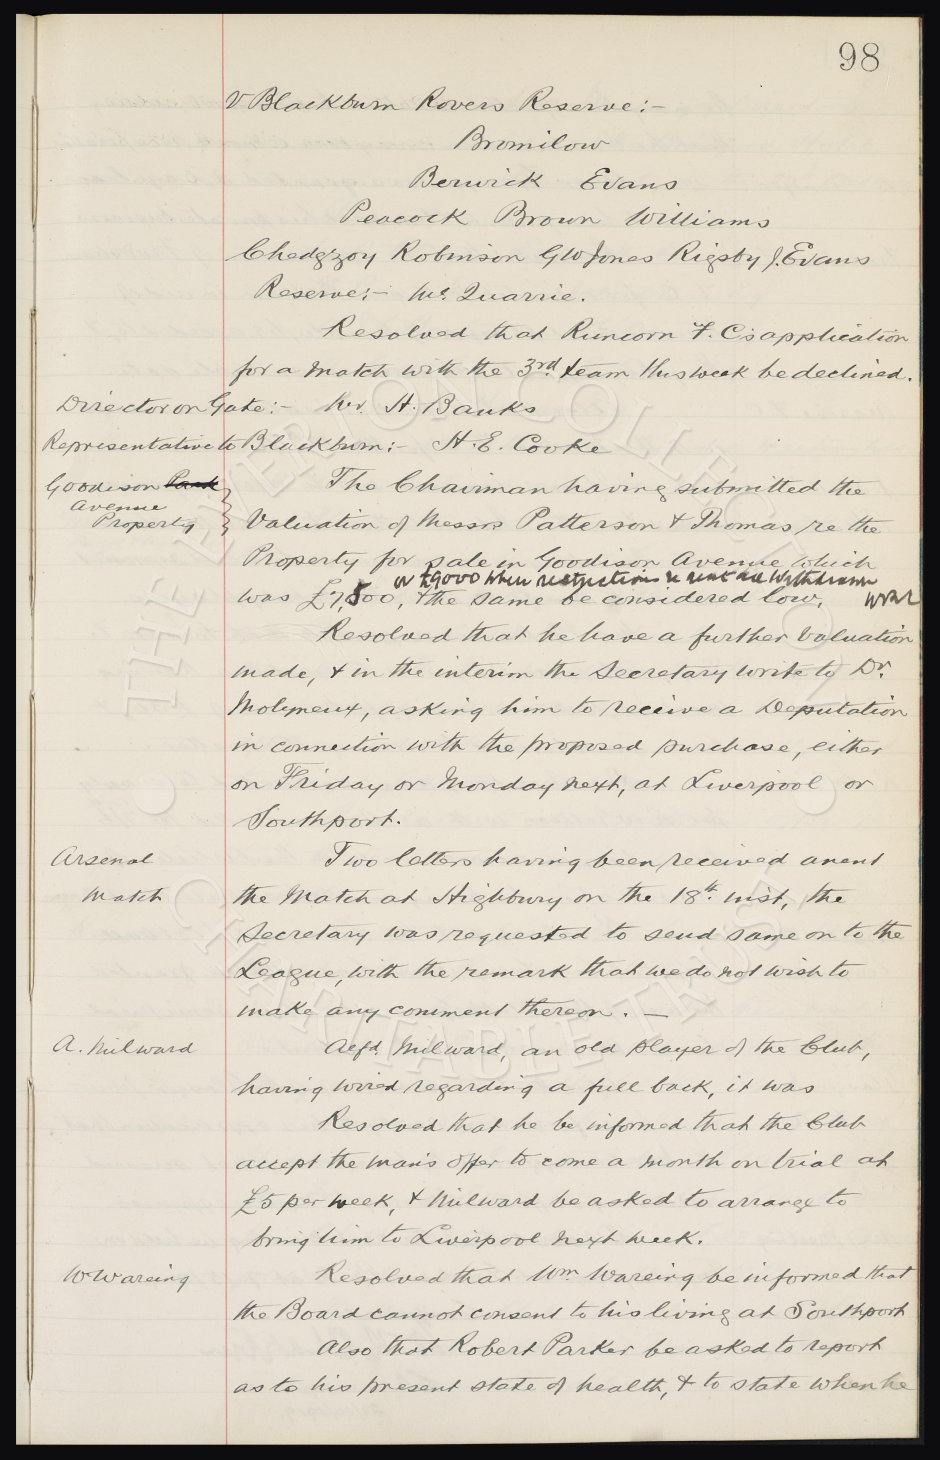 98
V Blackburn Rovers Reserve:-
Bromilow
Berwick Evans
Peacock Brown Williams
Chedgzoy Robinson G W Jones Rigsby J. Evans
Reserve:- McQuarrie.
Resolved that Runcorn F. C's application
for a match with the 3rd team this week be declined.
Director on Gate:- Mr. H. Banks
Representative to Blackburn:- H. E. Cooke
Goodison Park The Chairman having submitted the
Avenue
Property Valuation of Messrs Patterson & Thomas re the
Property for sale in Goodison Avenue which
or £9000 when restrictions re rent are withdrawn
was £7,500, & the same be considered low.
Resolved that he have a further valuation
made, & in the interim the Secretary write to Dr.
Molyneux, asking him to receive a Deputation
in connection with the proposed purchase, either
on Friday or Monday next, at Liverpool or
Southport.
Arsenal Two letters having been received anent
Match the Match at Highbury on the 18th. inst, the
Secretary was requested to send same on to the
League, with the remark that we do not wish to
make any comment thereon. —
A. Milward Alfd. Milward, an old player of the Club,
having wired regarding a full back, it was
Resolved that he be informed that the Club
accept the man's offer to come a month on trial at
£5 per week, & Milward be asked to arrange to
bring him to Liverpool next week.
W Wareing Resolved that Wm Wareing be informed that
the Board cannot consent to his living at Southport
Also that Robert Parker be asked to report
as to his present state of health, & to state when he
THE EVERTON COLLECTION
CHARITABLE TRUST